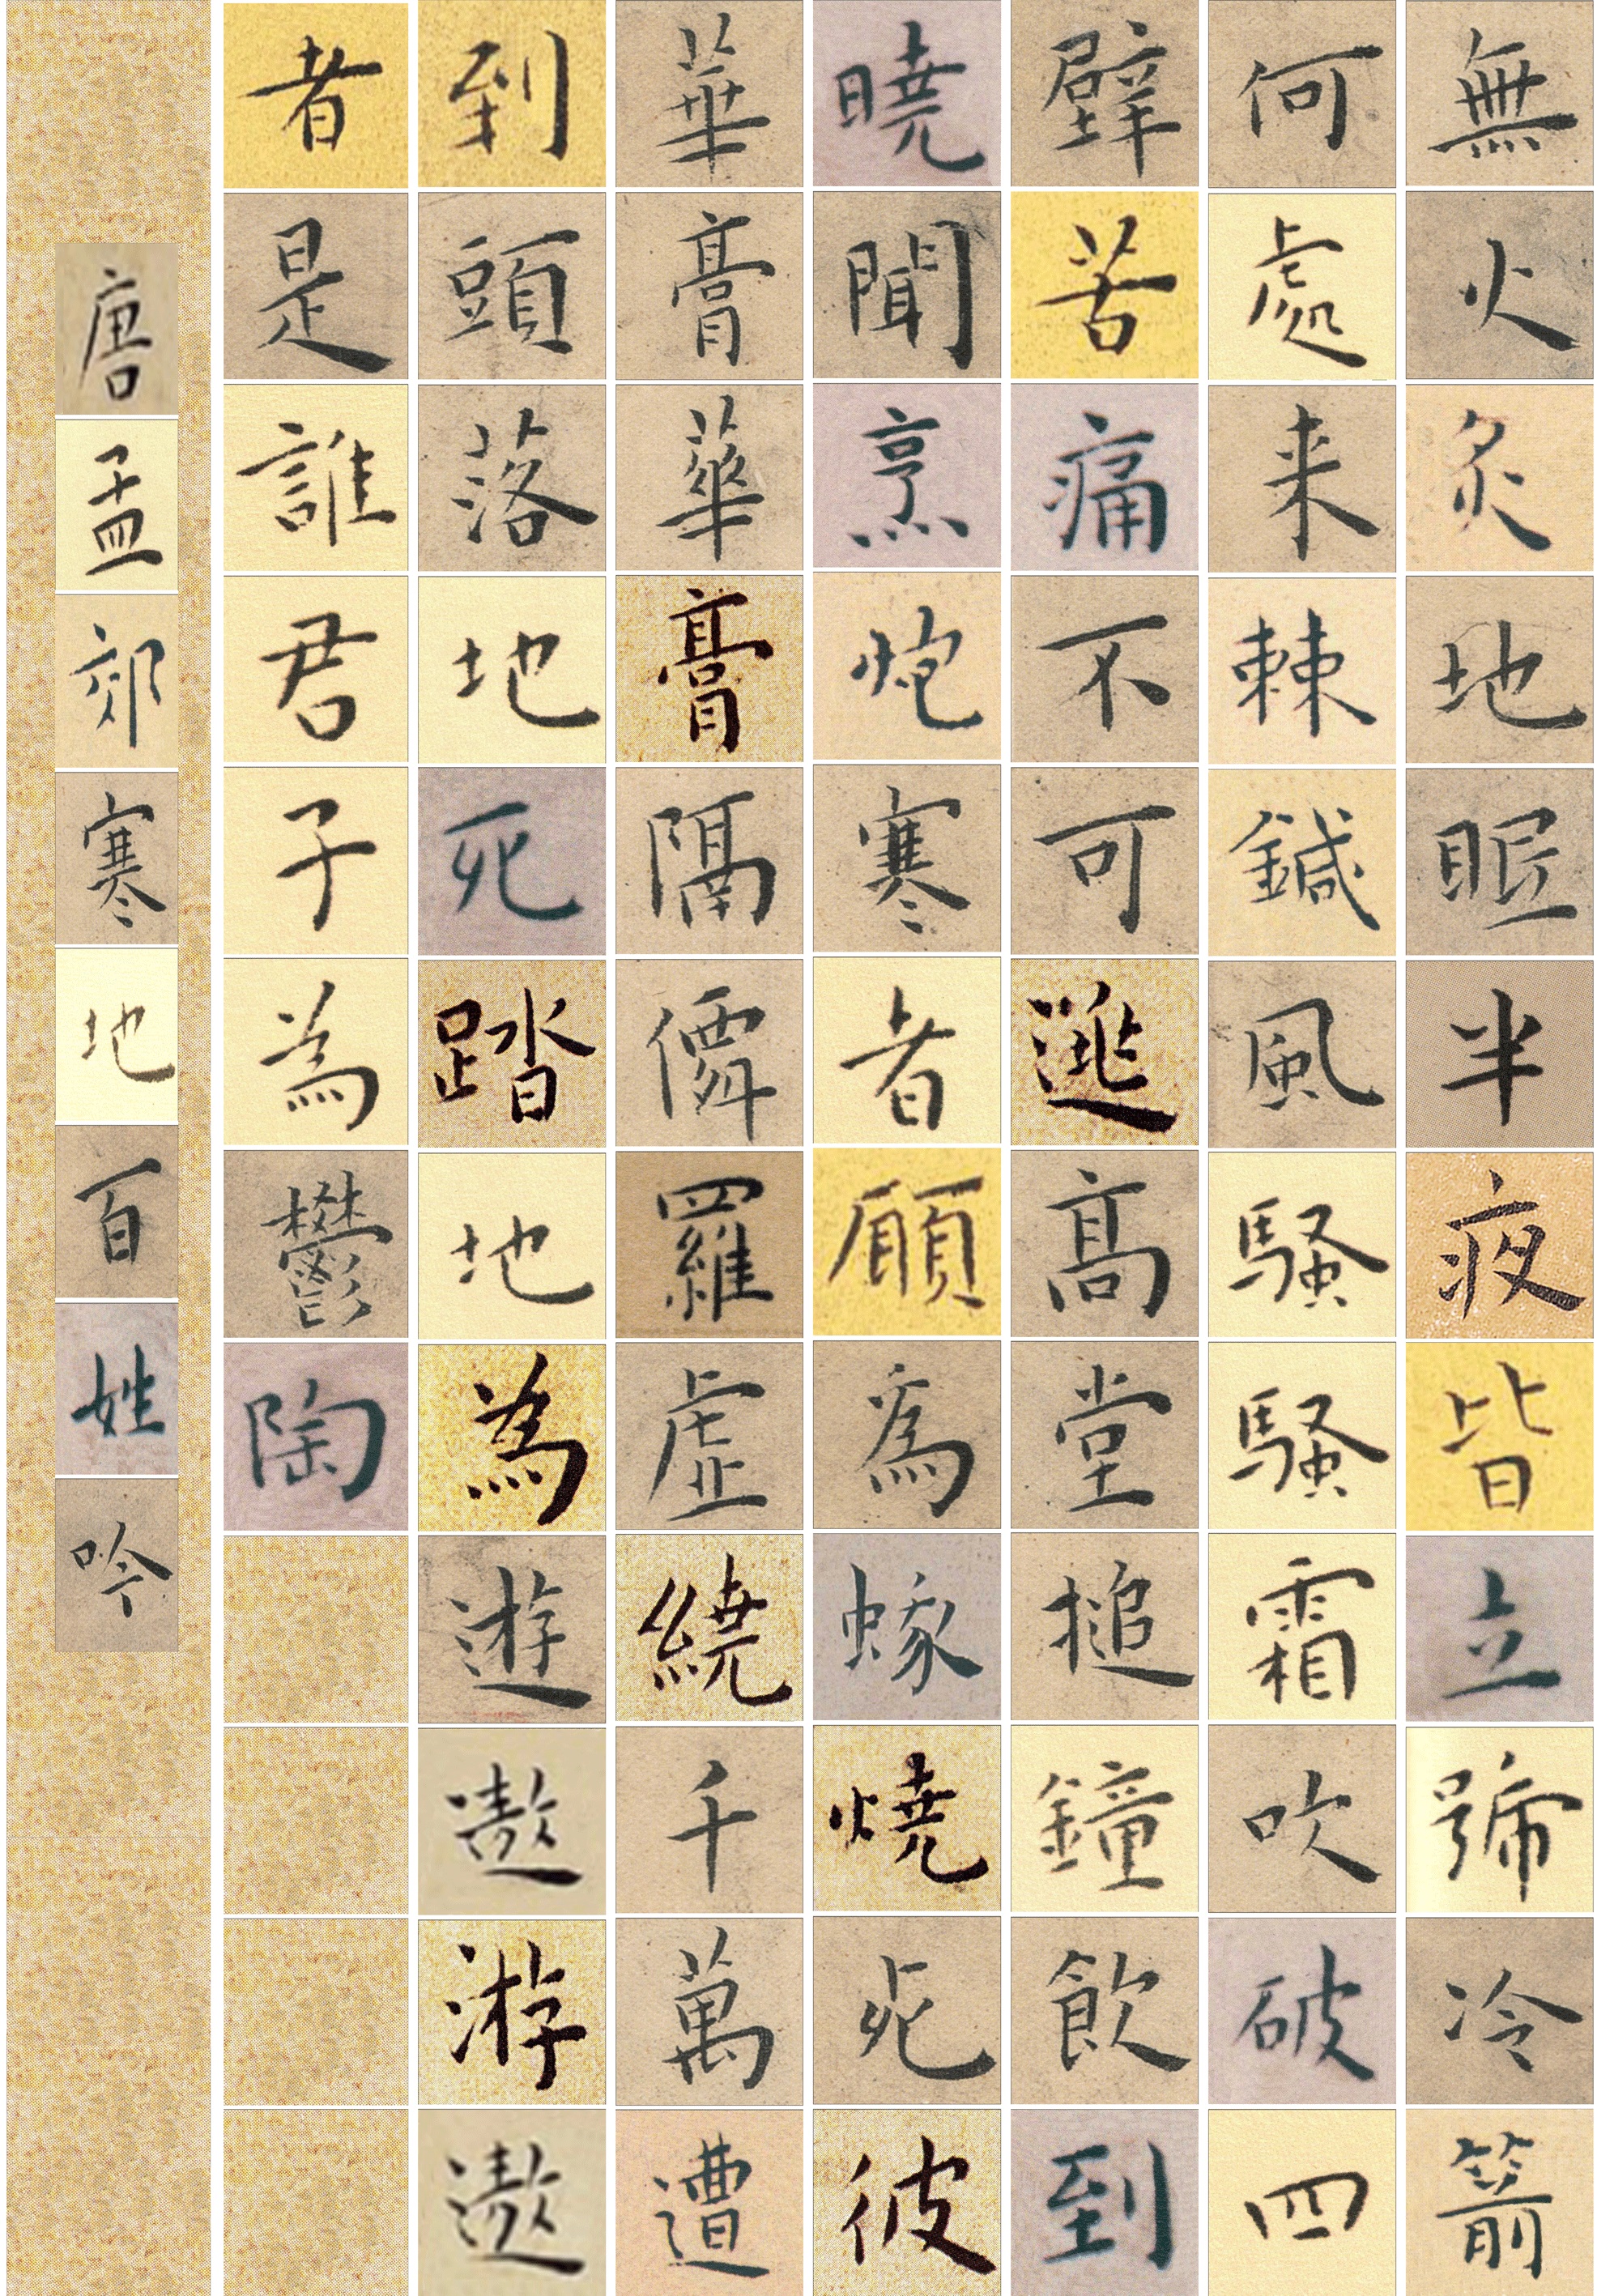 無火炙地眠半夜皆立號冷箭
何處来棘鍼風騷騷霜吹破四
壁苦痛不可逃高堂搥鐘飲到
曉聞烹炮寒者願為蛾燒死彼
華膏華膏隔僊羅虛繞千萬遭
到頭落地死踏地為遊遨游遨
者是誰君子為鬱陶
唐孟郊寒地百姓吟